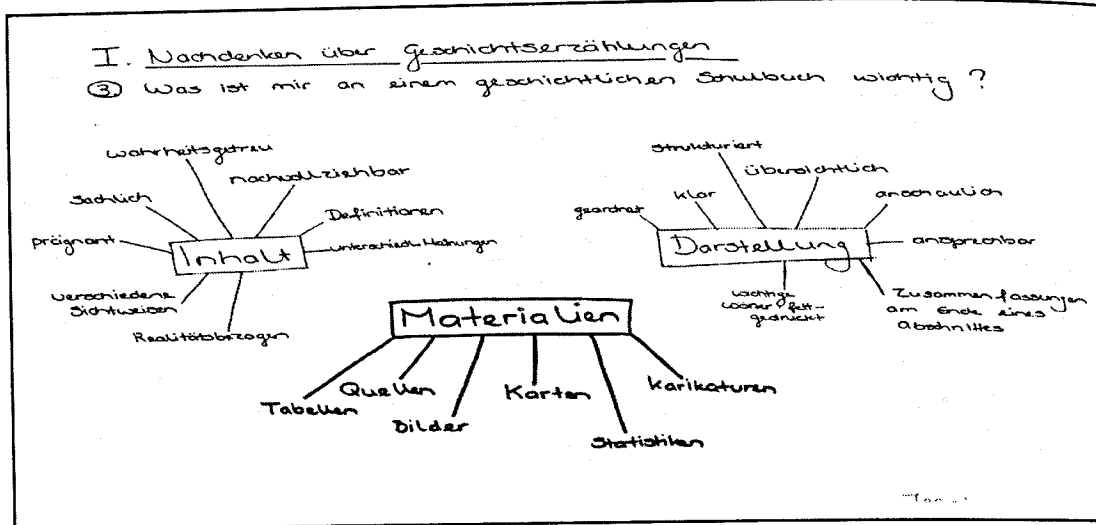 I. Nachdenken über Geschichtserzählungen
③ Was ist mir an einem geschichtlichen Schulbuch wichtig?
wahrheitsgetreu
nachvollziehbar
Sachlich
Definitionen
prägnant
unterschiedl. Meinungen
Inhalt
verschiedene
Sichtweisen
Realitätsbezogen
strukturiert
übersichtlich
klar
anschaulich
geordnet
ansprechbar
Darstellung
wichtige
Wörner fett-
gedruckt
Zusammenfassungen
am Ende eines
Abschnittes
Materialien
Tabellen
Quellen
Bilder
Karten
Statistiken
Karikaturen